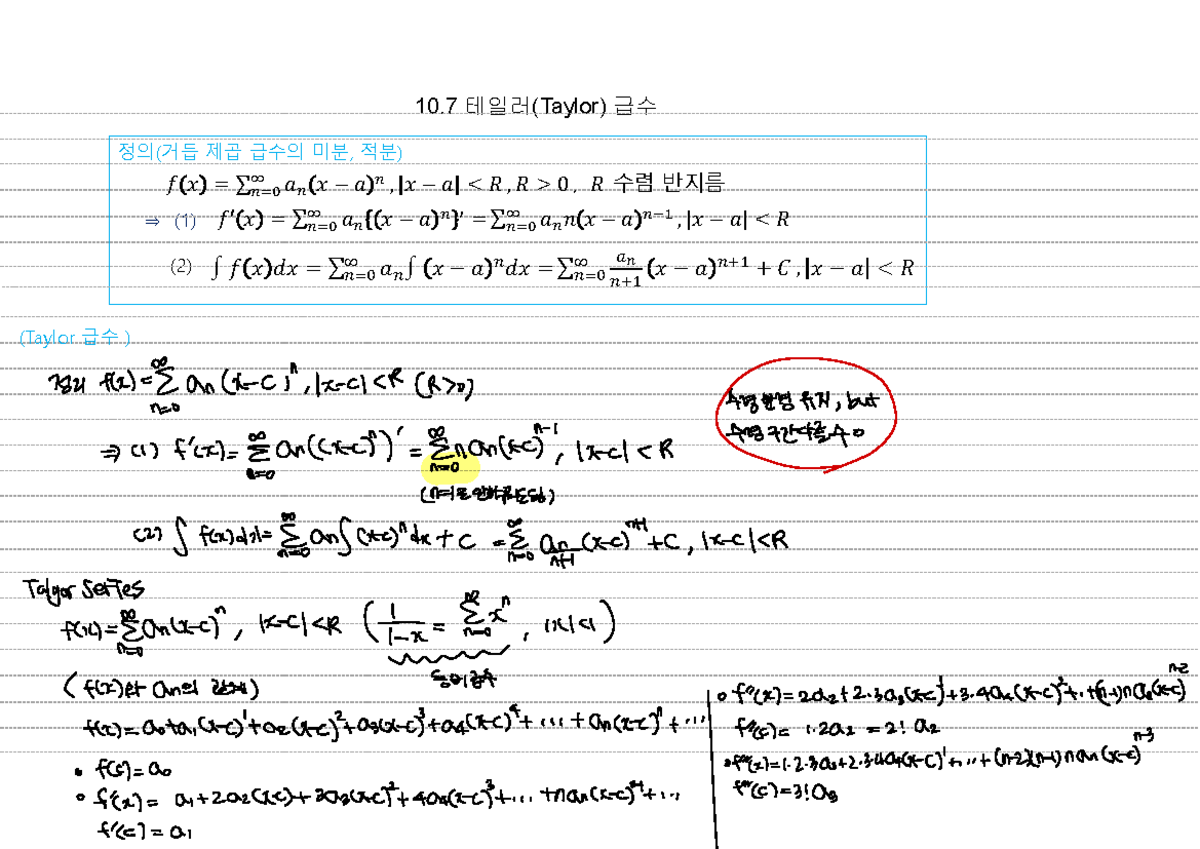 10.7 테일러(Taylor) 급수
정의(거듭 제곱 급수의 미분, 적분)
f(x) = ∑_{n=0}^{∞} a_n(x − a)^n , |x − a| < R , R > 0 , R 수렴 반지름
⇒ (1) f′(x) = ∑_{n=0}^{∞} a_n{(x − a)^n}′ = ∑_{n=0}^{∞} a_n n(x − a)^{n−1} , |x − a| < R
(2) ∫ f(x)dx = ∑_{n=0}^{∞} a_n ∫ (x − a)^n dx = ∑_{n=0}^{∞} \frac{a_n}{n+1} (x − a)^{n+1} + C , |x − a| < R
(Taylor 급수 )
정리 f(x) = ∑_{n=0}^{∞} a_n (x-c)^n , |x-c| < R (R>0)
수렴반경 유지, but
수렴구간다를수 o
⇒ (1) f′(x) = ∑_{n=0}^{∞} a_n((x-c)^n)′ = ∑_{n=0}^{∞} n a_n(x-c)^{n-1} , |x-c| < R
(2) ∫ f(x)dx = ∑_{n=0}^{∞} a_n ∫ (x-c)^n dx + C = ∑_{n=0}^{∞} \frac{a_n}{n+1} (x-c)^{n+1} + C , |x-c| < R
Taylor Series
f(x) = ∑_{n=0}^{∞} a_n(x-c)^n , |x-c| < R ( \frac{1}{1-x} = ∑_{n=0}^{∞} x^n , |x|<1 )
등비급수
( f(x)와 a_n의 관계 )
f(x) = a_0 + a_1(x-c)^1 + a_2(x-c)^2 + a_3(x-c)^3 + a_4(x-c)^4 + ... + a_n(x-c)^n + ...
• f(c) = a_0
• f′(x) = a_1 + 2a_2(x-c) + 3a_3(x-c)^2 + 4a_4(x-c)^3 + ... + n a_n(x-c)^{n-1} + ...
f′(c) = a_1
• f″(x) = 2a_2 + 2·3a_3(x-c)^1 + 3·4a_4(x-c)^2 + ... + (n-1)n a_n(x-c)^{n-2}
f″(c) = 1·2a_2 = 2! a_2
• f‴(x) = 1·2·3a_3 + 2·3·4a_4(x-c)^1 + ... + (n-2)(n-1)n a_n(x-c)^{n-3}
f‴(c) = 3! a_3